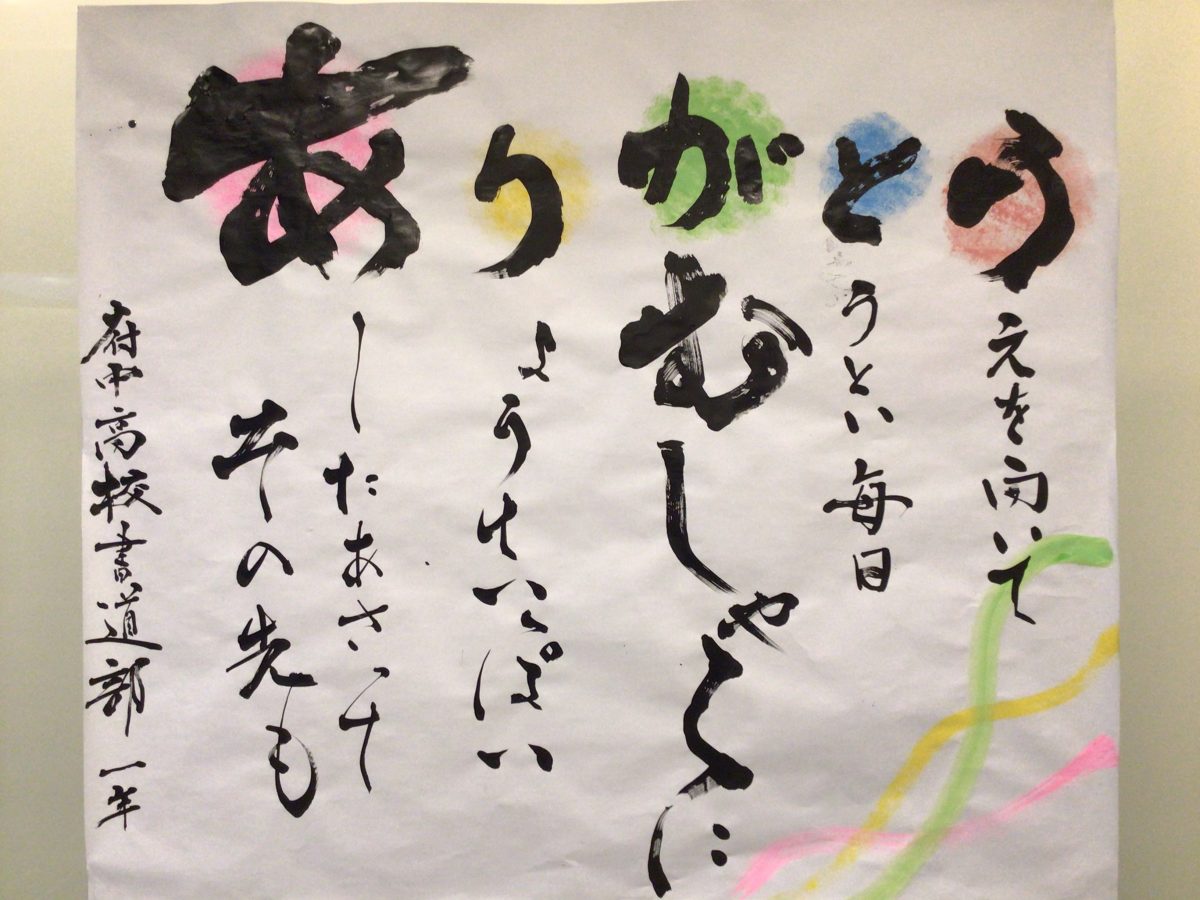 うえを向いて
とうとい毎日
がむしゃらに
りょうていっぱい
あしたあさって
その先も
府中高校書道部 一年